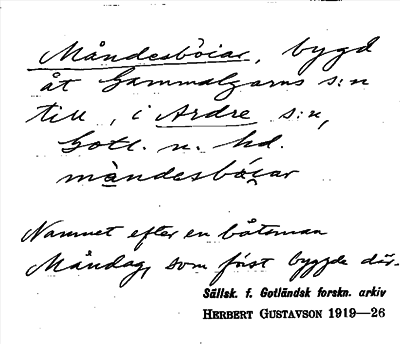 Måndesböiar, bygd
åt Gammalgarns s:n
till, i Ardre s:n,
Gotl. n. hd.
måndesböiar
Namnet efter en båtsman
Måndag, som först byggde där.
Sällsk. f. Gotländsk forskn. arkiv
HERBERT GUSTAVSON 1919—26